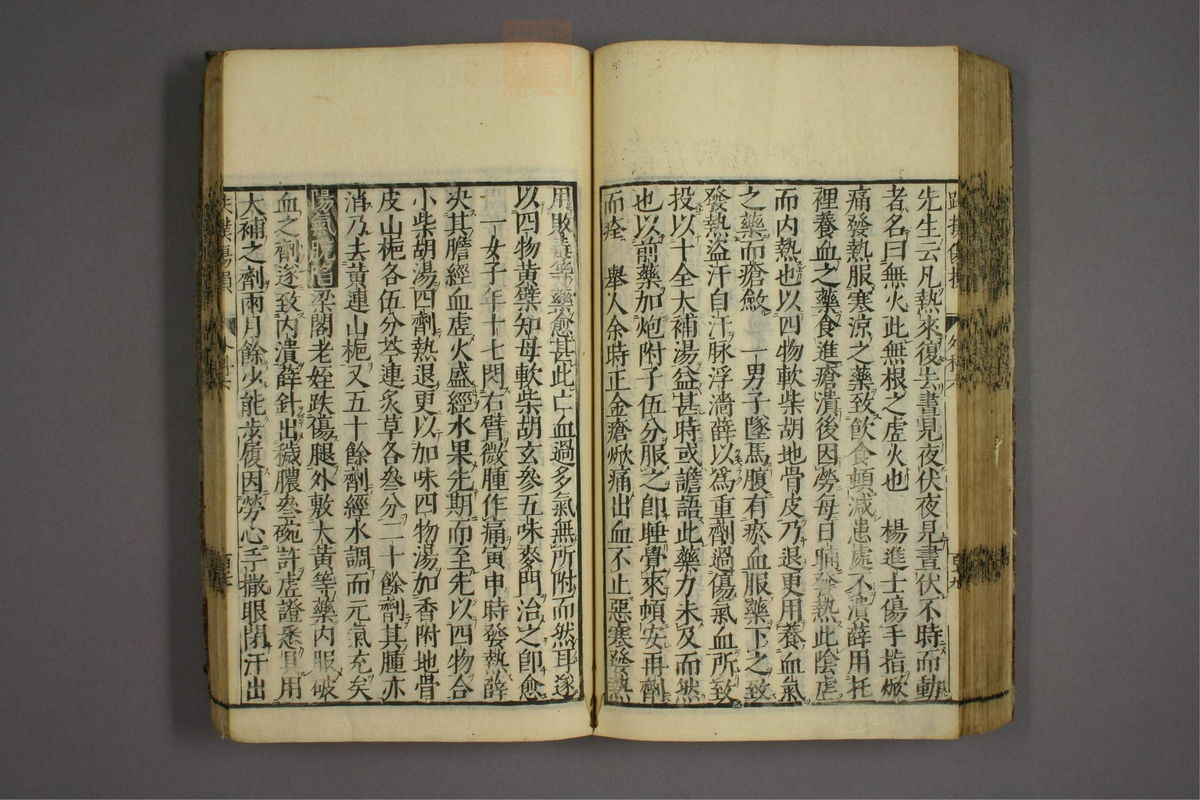 先生云凡熱來復去晝見夜伏夜見晝伏不時而動
者名曰無火此無根之虛火也 楊進士傷手指焮
痛發熱服寒涼之藥致飲食頓減患處不潰薛用托
裡養血之藥食進瘡潰後因勞每日晡發熱此陰虛
而內熱也以四物軟柴胡地骨皮乃退更用養血氣
之藥而瘡斂 一男子墜馬腹有瘀血服藥下之致
發熱盜汗自汗脉浮濇薛以爲重劑過傷氣血所致
投以十全大補湯益甚時或譫語此藥力未及而然
也以前藥加炮附子伍分服之卽睡覺來頓安再劑
而痊 舉人余時正金瘡焮痛出血不止惡寒發熱
用敗毒等藥愈甚此亡血過多氣無所附而然耳遂
以四物黃蘗知母軟柴胡玄參五味麥門治之卽愈
一女子年十七閃右臂微腫作痛寅申時發熱薛
决其膽經血虛火盛經水果先期而至先以四物合
小柴胡湯四劑熱退更以加味四物湯加香附地骨
皮山梔各伍分芩連炙草各叄分二十餘劑其腫亦
消乃去黃連山梔又五十餘劑經水調而元氣充矣
陽氣脫陷梁閣老姪跌傷腿外敷大黃等藥內服破
血之劑遂致內潰薛針出穢膿叄碗許虛證悉具用
大補之劑兩月餘少能步履因勞心手撒眼閉汗出